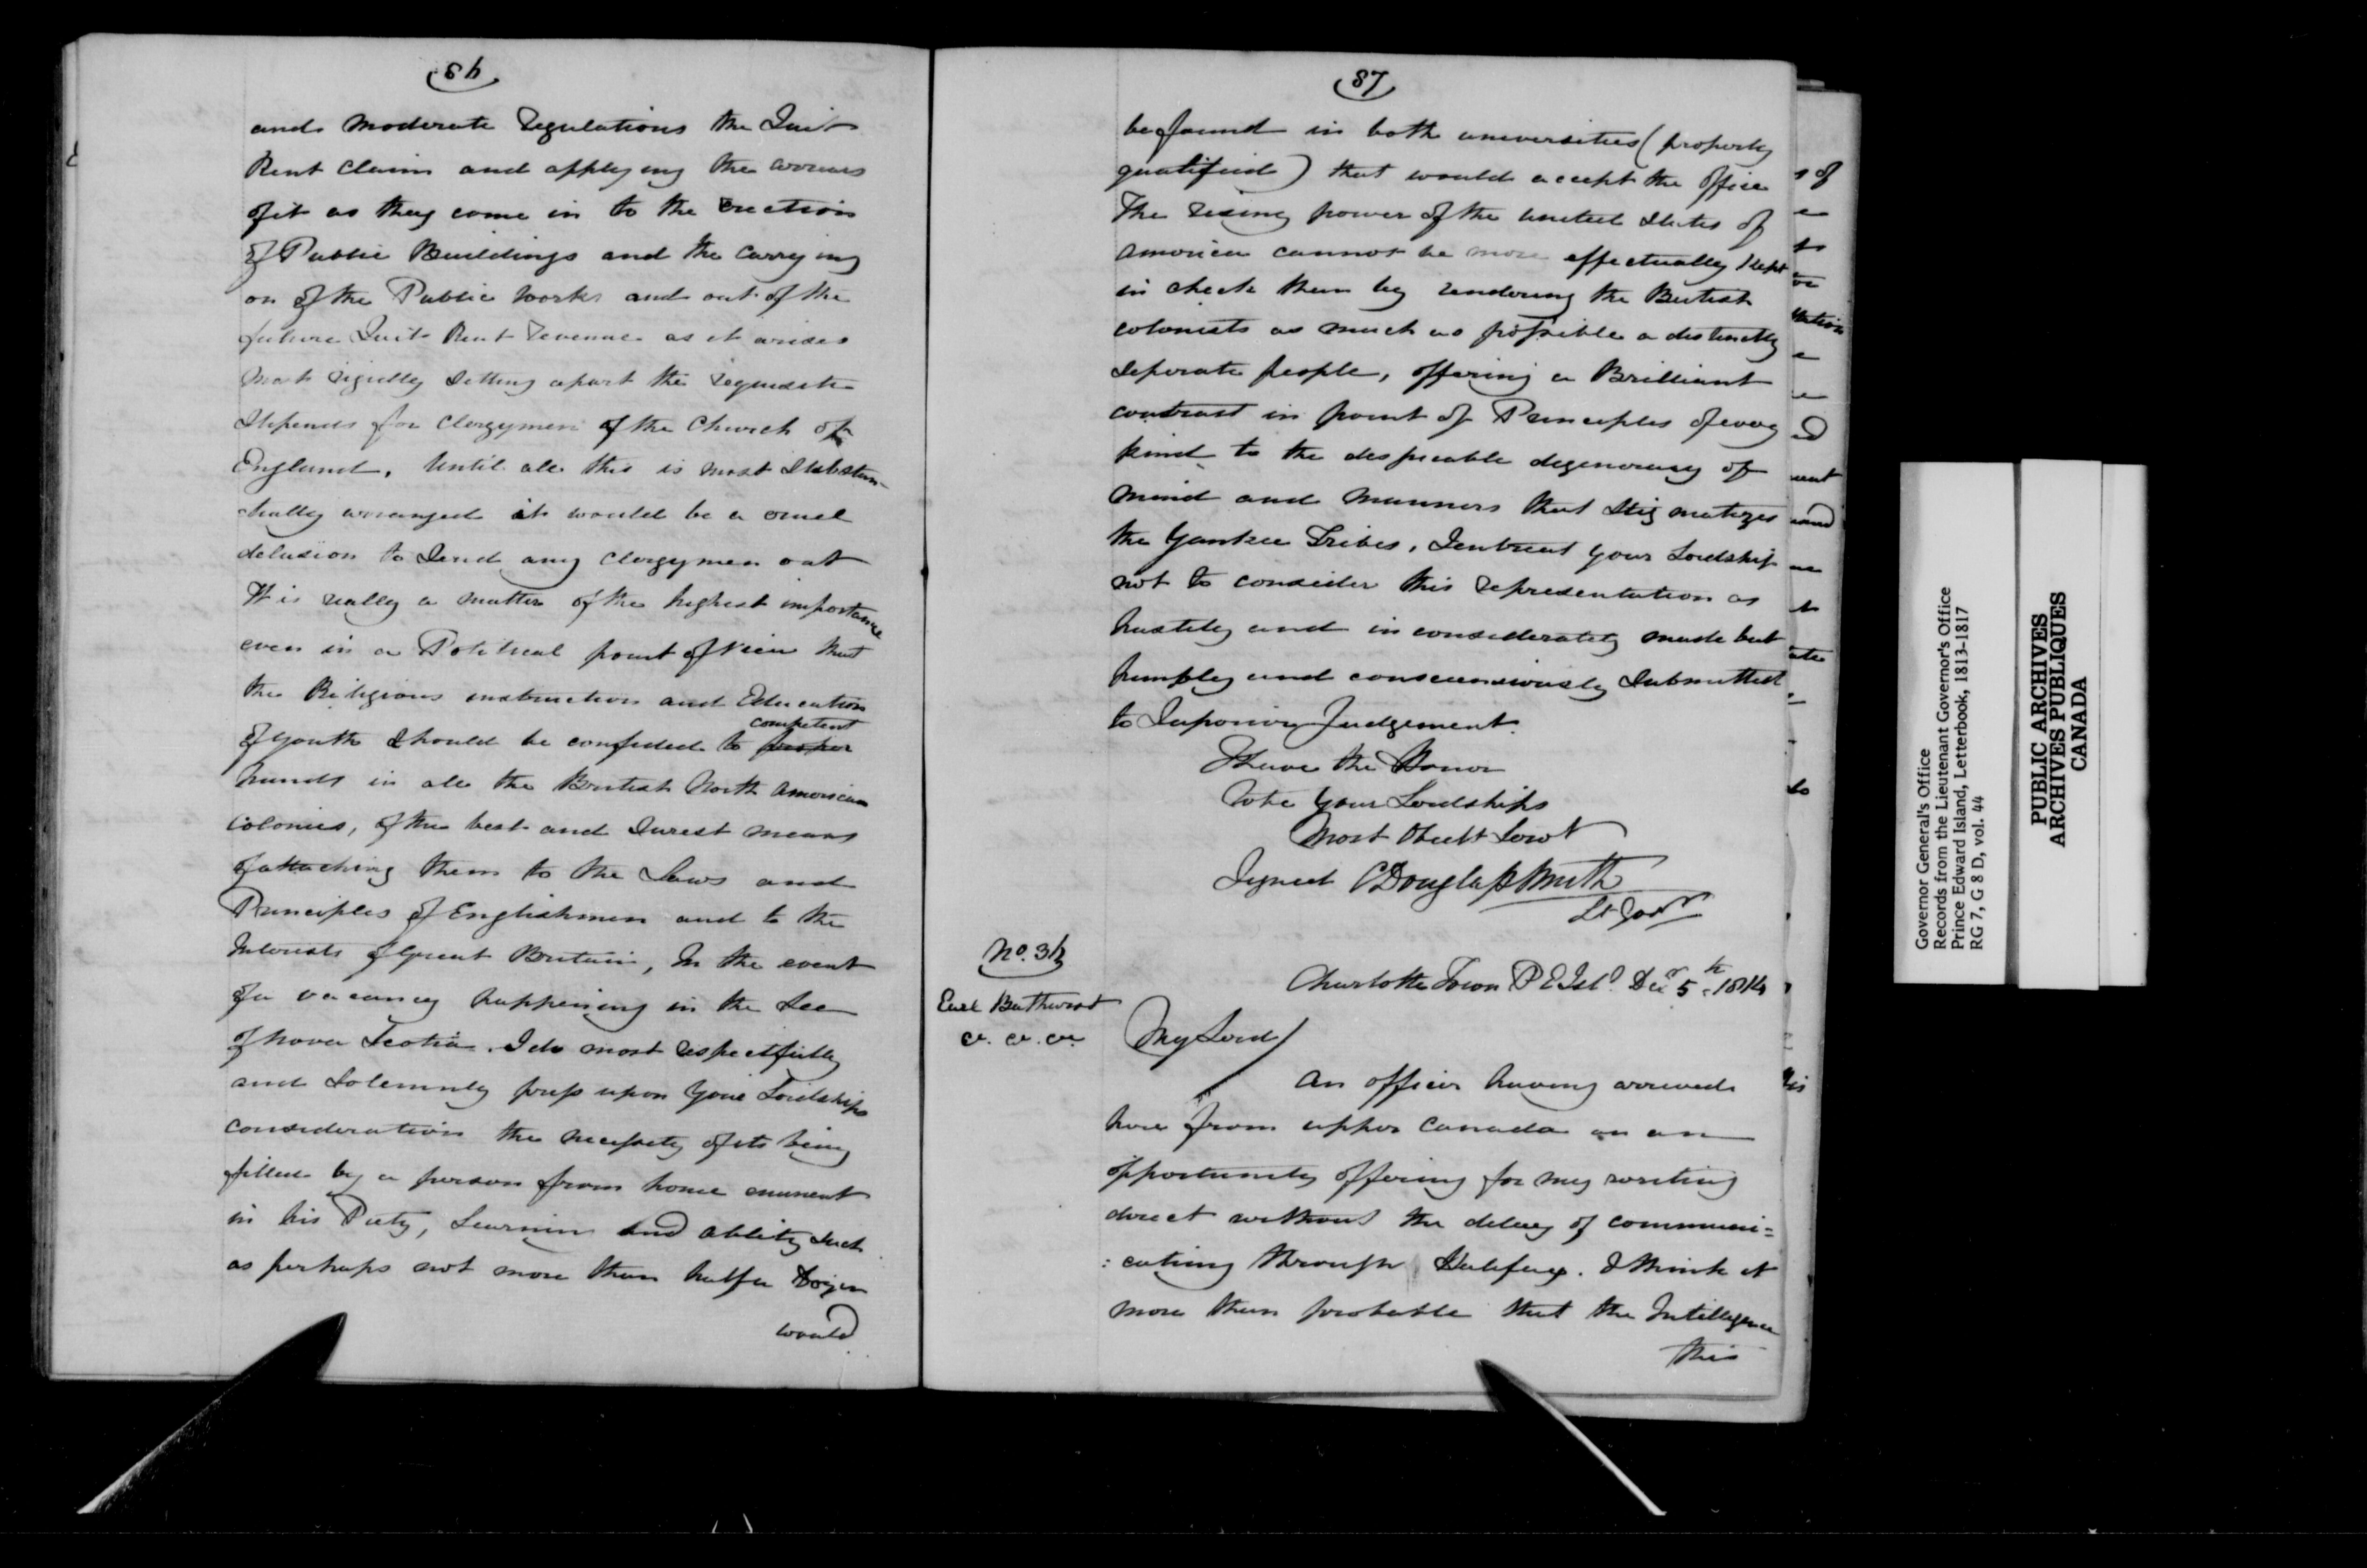 86
and moderate regulations the Quit
Rent Claim and applying the arrears
of it as they come in to the Erection
of Public Buildings and the carrying
on of the Public works and out of the
future Quit Rent revenue as it arises
most rigidly setting apart the requisite
Stipends for Clergymen of the Church of
England, Until all this is most Substan-
tially arranged it would be a cruel
delusion to send any clergymen out
It is really a matter of the highest importance
even in a Political point of View that
the Religious instruction and Education
competent
of youth should be confided to proper
hands in all the British North American
Colonies, of the best and surest means
of attaching them to the Laws and
Principles of Englishmen and to the
Interests of Great Britain, In the event
of a vacancy happening in the See
of Nova Scotia. I do most respectfully
and solemnly press upon your Lordships
consideration the necessity of its being
filled by a person from home eminent
in his Piety, Learning and ability such
as perhaps not more than half a Dozen
would
87
be found in both universities (properly
qualified) that would accept the office
The rising power of the United States of
America cannot be more effectually kept
in check than by rendering the British
colonists as much as possible a distinctly
seperate people, offering a Brilliant
contrast in point of Principles of every
kind to the despicable degeneracy of
mind and manners that stigmatizes
the Yankee Tribes, I entreat your Lordship
not to consider this representation as
hastily and inconsiderately made but
humbly and consciensiously submitted
to Superior Judgement.
I have the Honor
To be your Lordships
Most Obedt Servt
Signed C Douglass Smith
Lt Govr
No. 34
Earl Bathurst
&. &. &.
Charlotte Town P E Isld. Decr 5th 1814
My Lord/
An officer having arrived
here from upper Canada on an
opportunity offering for my writing
direct without the delay of communi=
:cating through Halifax. I think it
more than probable that the Intelligence
this
Governor General's Office
Records from the Lieutenant Governor's Office
Prince Edward Island, Letterbook, 1813-1817
RG 7, G 8 D, vol. 44
PUBLIC ARCHIVES
ARCHIVES PUBLIQUES
CANADA